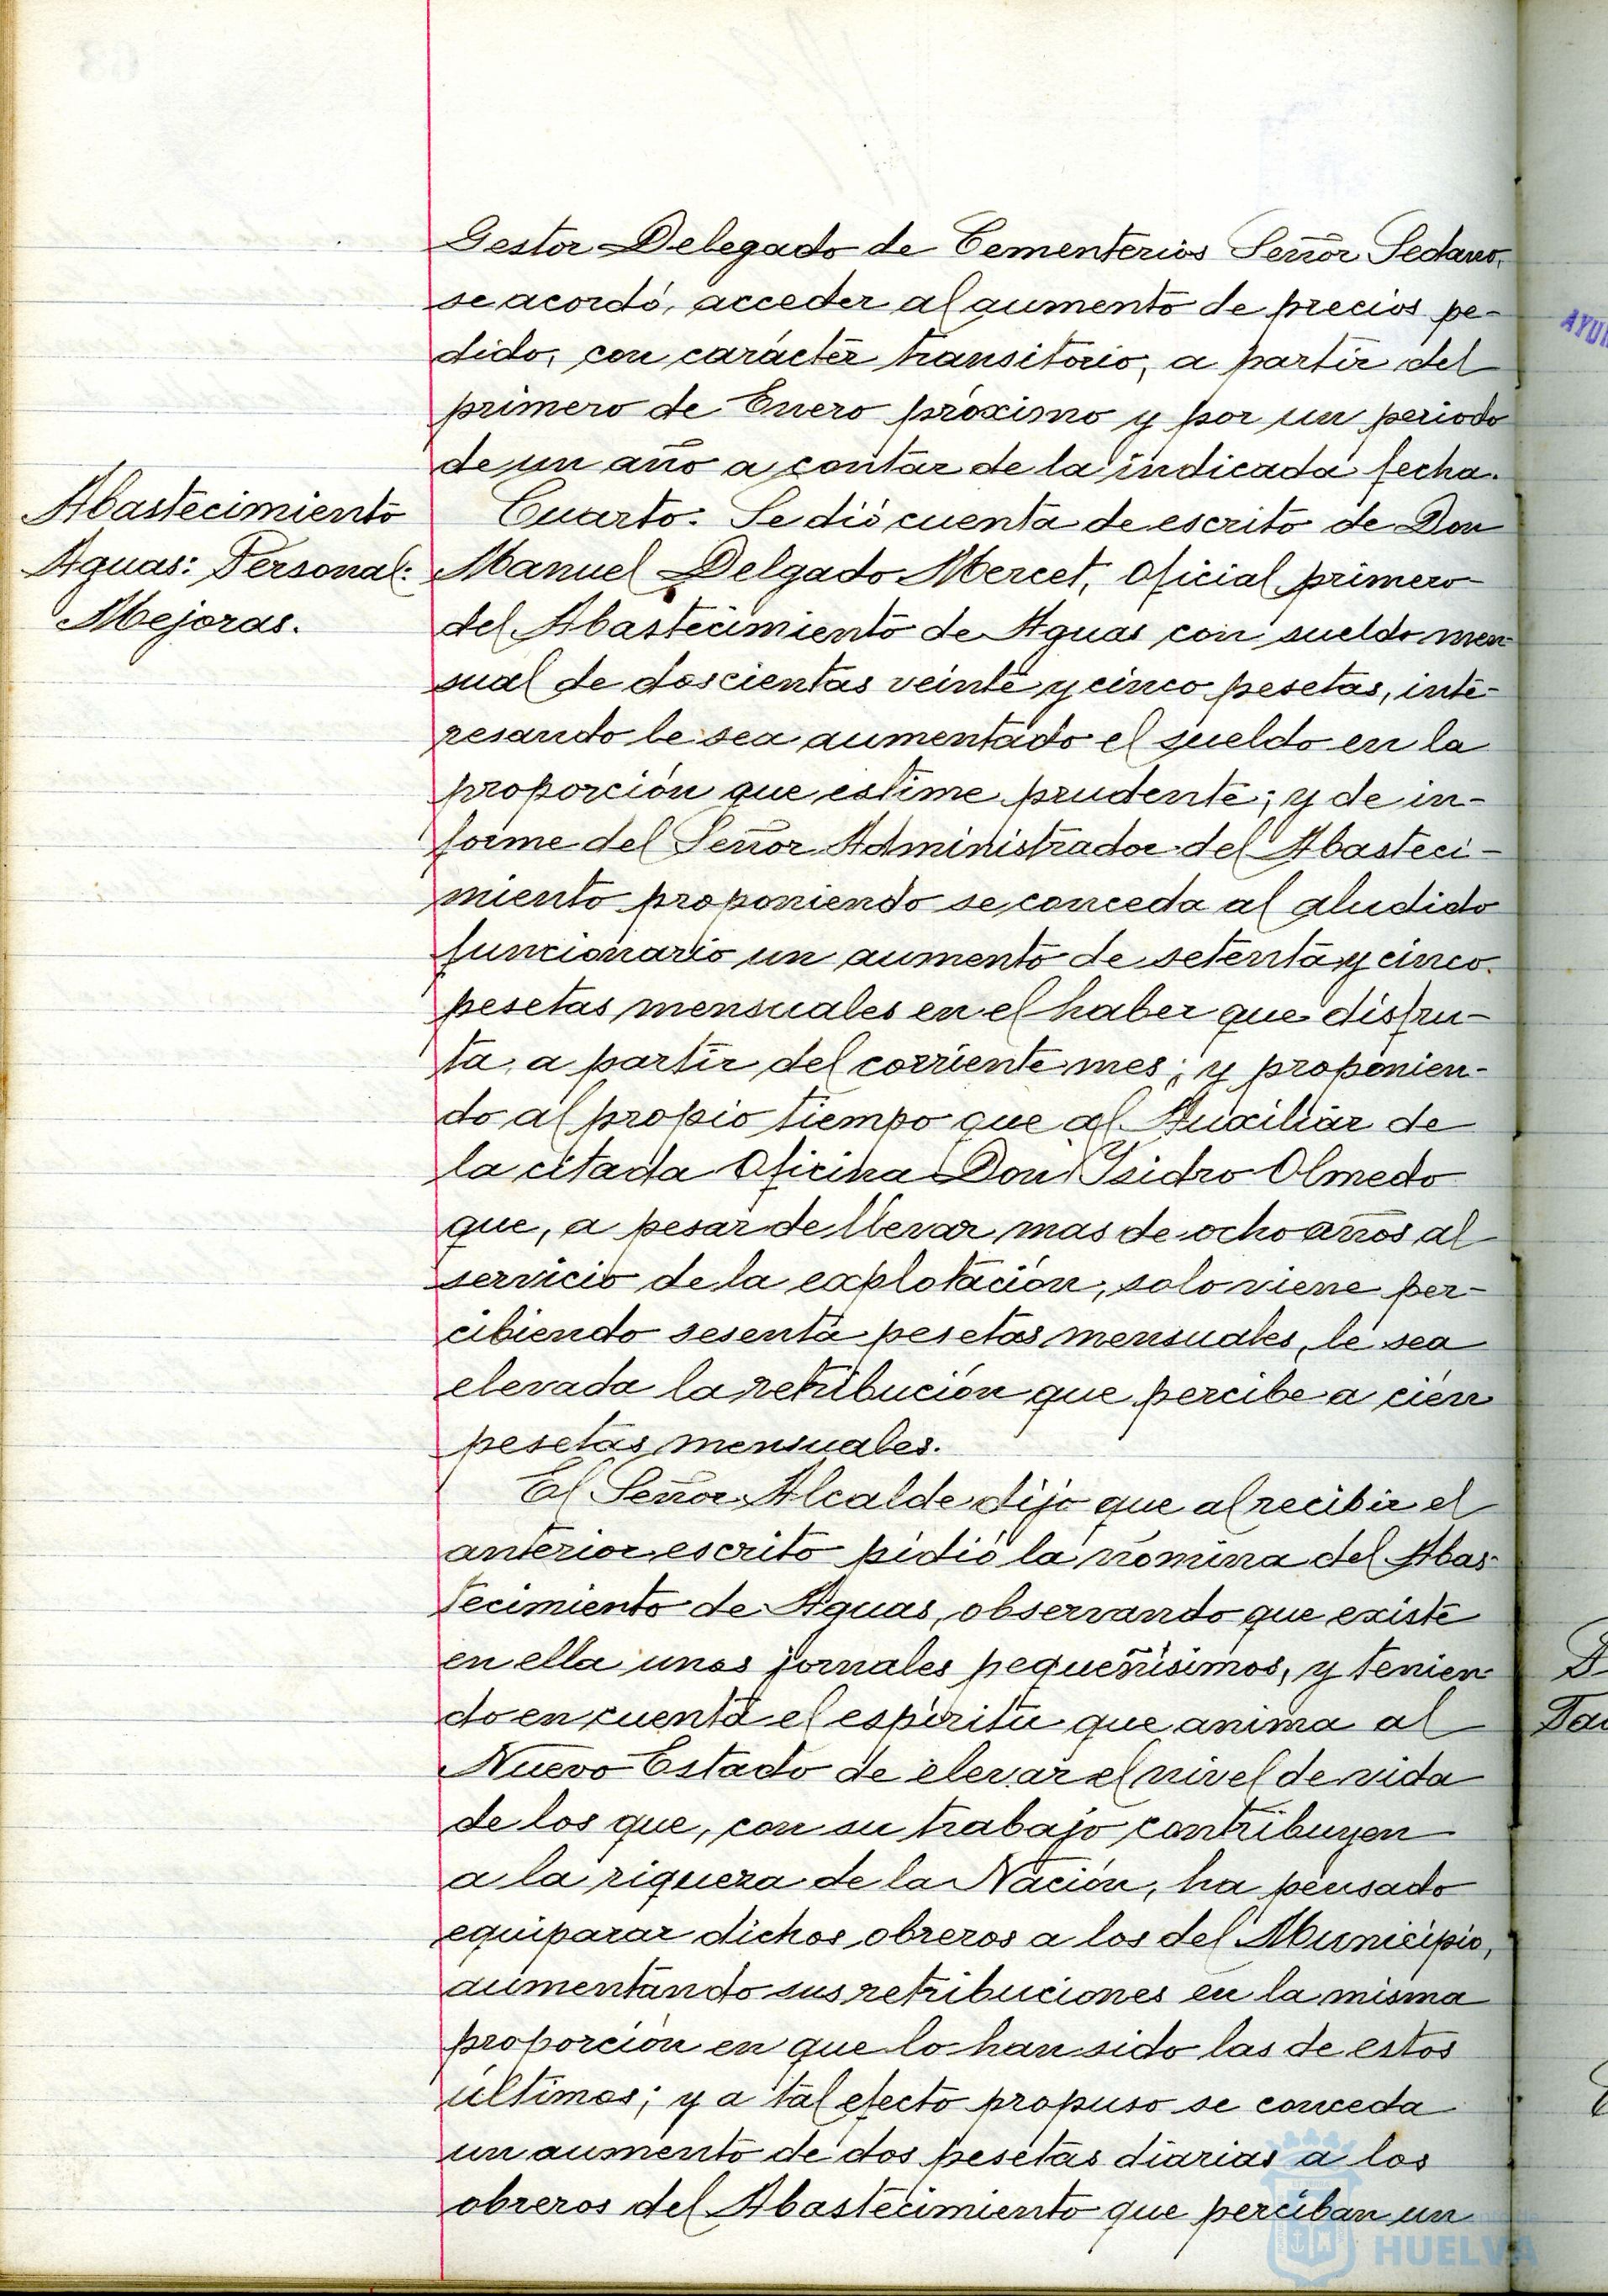 Gestor Delegado de Cementerios Señor Sedano,
se acordó, acceder al aumento de precios pe-
dido, con carácter transitorio, a partir del
primero de Enero próximo y por un periodo
de un año a contar de la indicada fecha.
Abastecimiento
Aguas: Personal:
Mejoras.
Cuarto. Se dió cuenta de escrito de Don
Manuel Delgado Mercet, Oficial primero
del Abastecimiento de Aguas con sueldo men-
sual de doscientas veinte y cinco pesetas, inte-
resando le sea aumentado el sueldo en la
proporción que estime prudente; y de in-
forme del Señor Administrador del Abasteci-
miento proponiendo se conceda al aludido
funcionario un aumento de setenta y cinco
pesetas mensuales en el haber que disfru-
ta, a partir del corriente mes; y proponien-
do al propio tiempo que al Auxiliar de
la citada Oficina Don Isidro Olmedo
que, a pesar de llevar mas de ocho años al
servicio de la explotación, solo viene per-
cibiendo sesenta pesetas mensuales, le sea
elevada la retribución que percibe a cien
pesetas mensuales.
El Señor Alcalde dijo que al recibir el
anterior escrito pidió la nómina del Abas-
tecimiento de Aguas, observando que existe
en ella unos jornales pequeñísimos, y tenien
do en cuenta el espíritu que anima al
Nuevo Estado de elevar el nivel de vida
de los que, con su trabajo contribuyen
a la riqueza de la Nación, ha pensado
equiparar dichos obreros a los del Municipio,
aumentando sus retribuciones en la misma
proporción en que lo han sido las de estos
últimos; y a tal efecto propuso se conceda
un aumento de dos pesetas diarias a los
obreros del Abastecimiento que perciban un
HUELVA